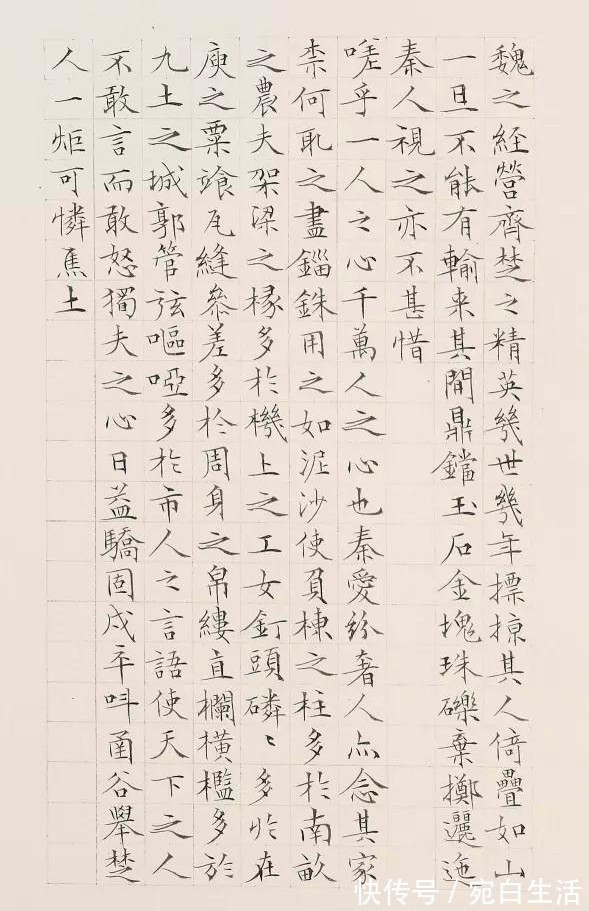 魏之經營齊楚之精英幾世幾年摽掠其人倚疊如山
一旦不能有輸来其間鼎鐺玉石金塊珠礫棄擲邐迤
秦人視之亦不甚惜
嗟乎一人之心千萬人之心也秦愛紛奢人亦念其家
柰何取之盡錙銖用之如泥沙使負棟之柱多於南畝
之農夫架梁之椽多於機上之工女釘頭磷〻多於在
庾之粟瓦縫參差多於周身之帛縷直欄橫檻多於
九土之城郭管弦嘔啞多於市人之言語使天下之人
不敢言而敢怒獨夫之心日益驕固戍卒叫函谷舉楚
人一炬可憐焦土
快传号 / 宛白生活